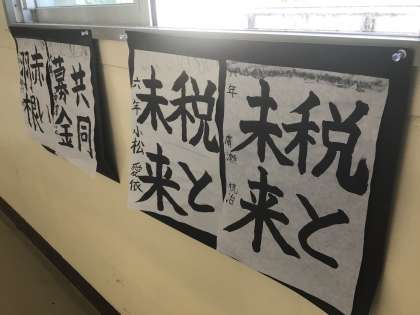 税と
未来
年
税と
未来
六年 小松愛依
共同
募金
赤い
羽根